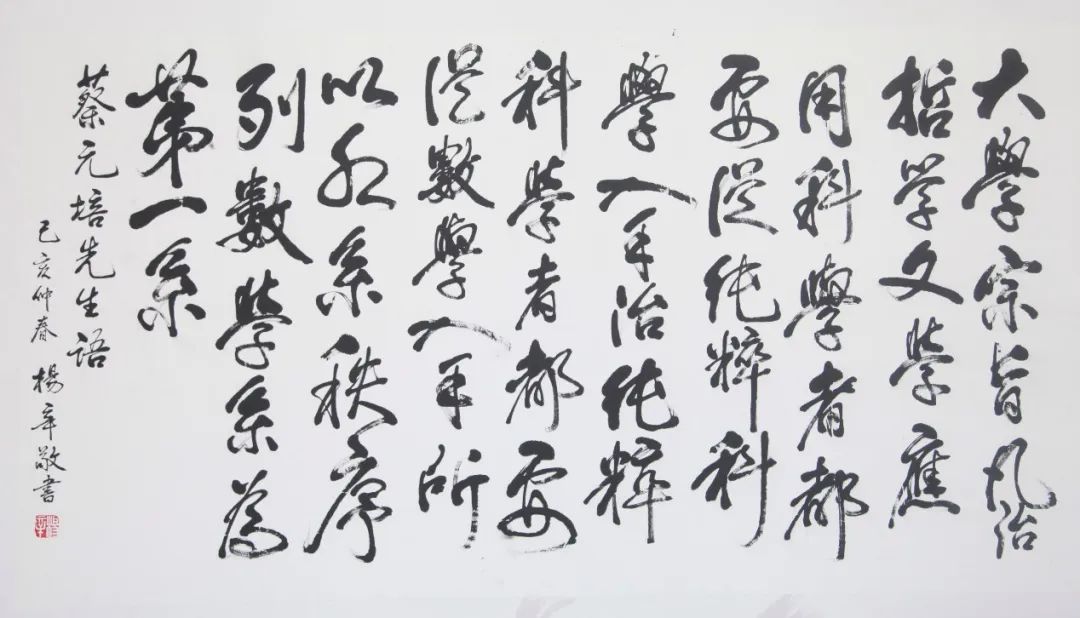 大學宗旨凡治
哲学文学應
用科學者都
要從純粹科
學入手治純粹
科学者都要
從數學入手所
以各系秩序
列數学系為
第一系
蔡元培先生語
己亥仲春 楊辛敬書